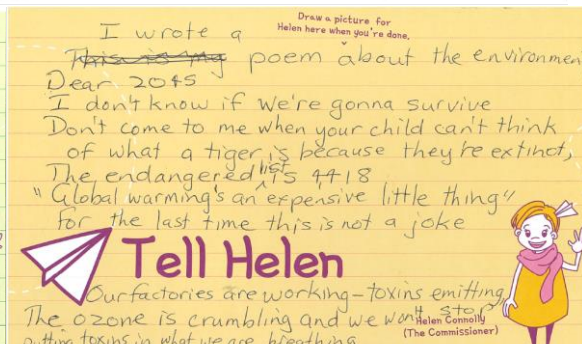 Draw a picture for
Helen here when you're done.
I wrote a
This is my poem about the environmen
Dear 2045
I don't know if we're gonna survive
Don't come to me when your child can't think
of what a tiger is because they're extinct,
The endangered list is 4418
"Global warming's an expensive little thing"
for the last time this is not a joke
?
Tell Helen
Our factories are working-toxins emitting,
The ozone is crumbling and we won't stop
putting toxins in what we are breathing
Helen Connolly
(The Commissioner)